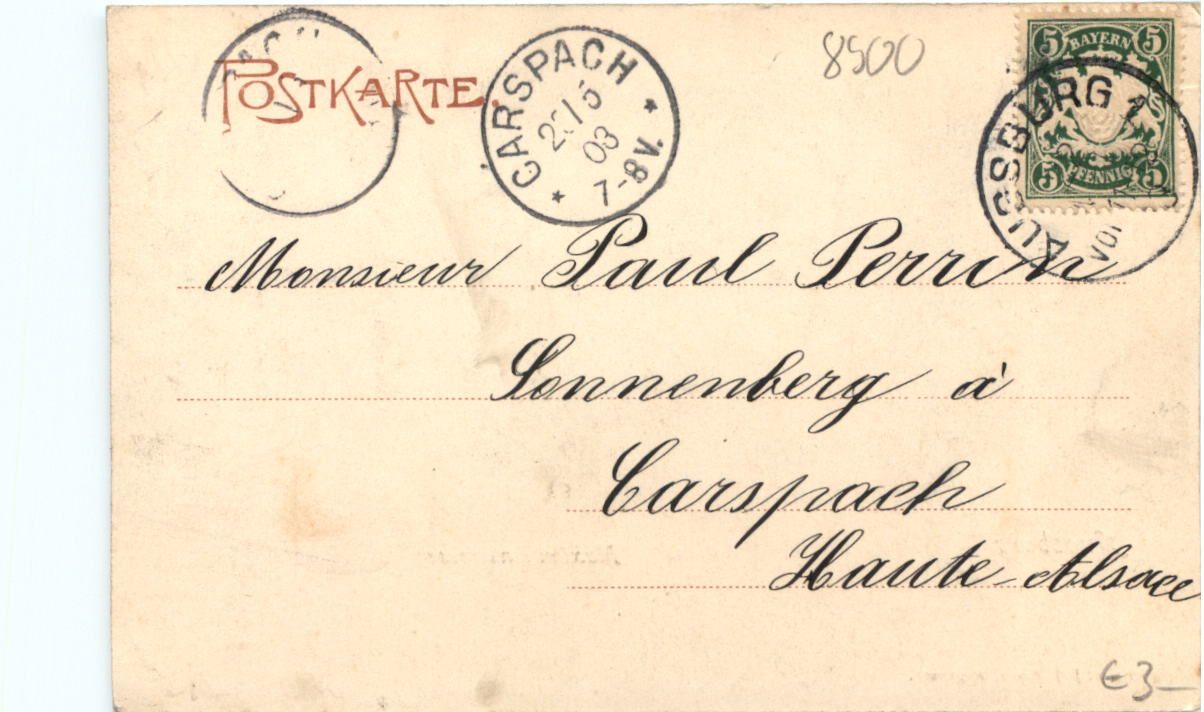 POSTKARTE.
CARSPACH
03
7-8V.
8500
5 BAYERN 5
5 PFENNIG 5
AUGSBURG 1
Monsieur Paul Perrin
Sonnenberg à
Carspach
Haute-Alsace
€3-